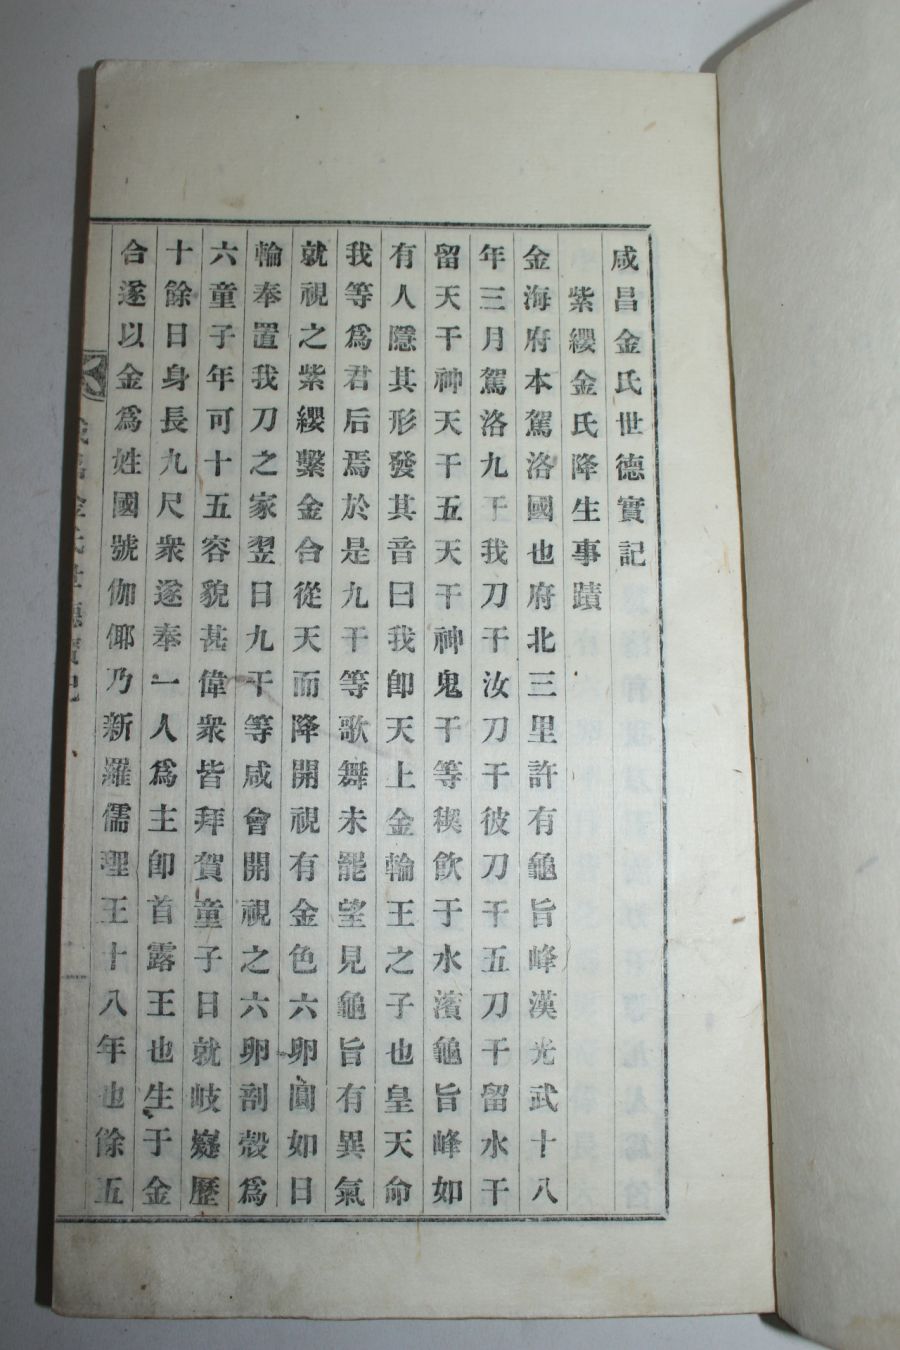 咸昌金氏世德實記
紫纓金氏降生事蹟
金海府本駕洛國也府北三里許有龜旨峰漢光武十八
年三月駕洛九干我刀干汝刀干彼刀干五刀干留水干
留天干神天干五天干神鬼干等禊飮于水濱龜旨峰如
有人隱其形發其音曰我卽天上金輪王之子也皇天命
我等爲君后焉於是九干等歌舞未罷望見龜旨有異氣
就視之紫纓繫金合從天而降開視有金色六卵圓如日
輪奉置我刀之家翌日九干等咸會開視之六卵剖殼爲
六童子年可十五容貌甚偉衆皆拜賀童子日就岐嶷歷
十餘日身長九尺衆遂奉一人爲主卽首露王也生于金
合遂以金爲姓國號伽倻乃新羅儒理王十八年也餘五
咸昌金氏世德實記